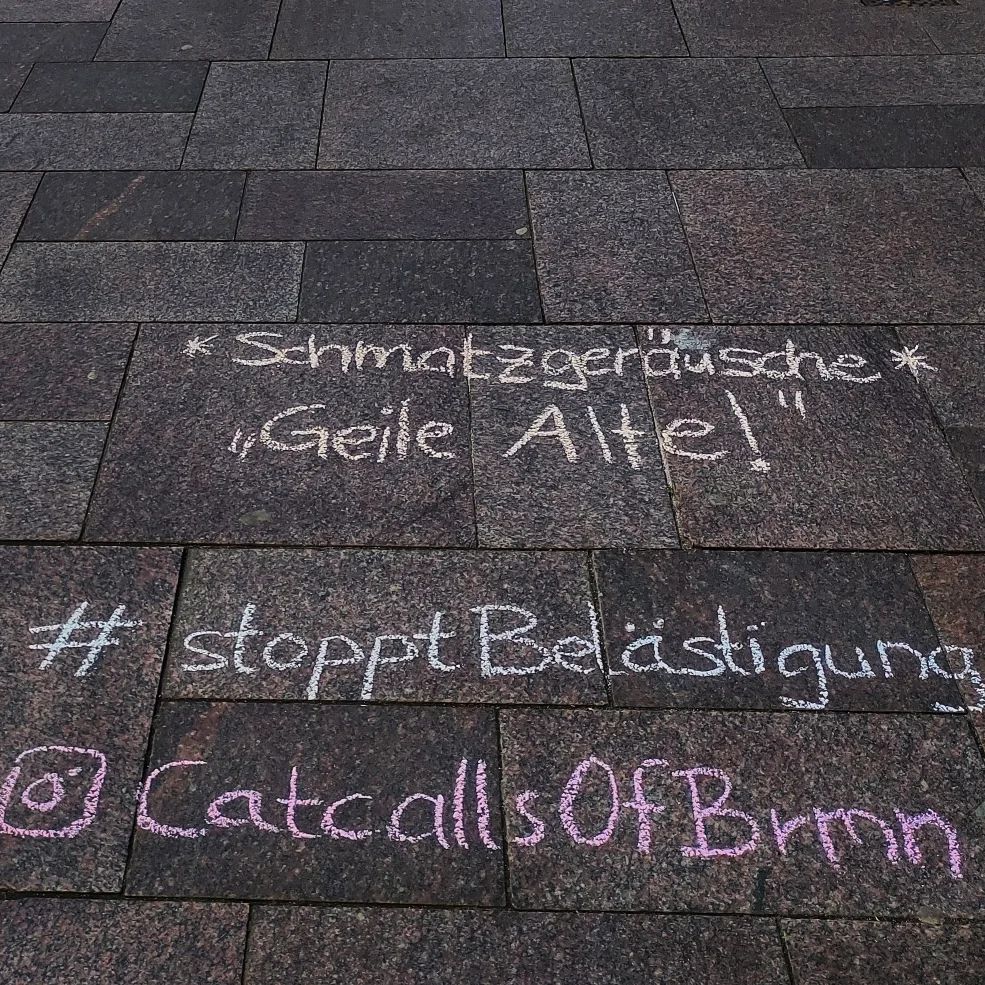 *Schmatzgeräusche*
„Geile Alte!"
#stoppt Belästigung
CatcallsOfBrmn